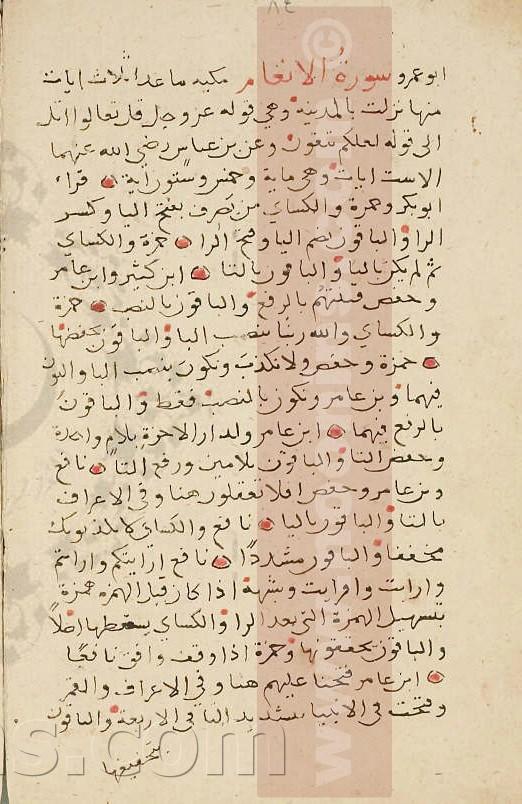 ٨٤
ابو عمرو سورة الانعام مكيه ما عدا ثلاث ايات
منها نزلت بالمدينة وهي قوله عز وجل قل تعالوا اتل
الى قوله لعلكم تتقون وعن بن عباس رضي الله عنهما
الاست ايات وهي ماية وخمس وستون اية قراء
ابو بكر وحمزة والكساي من يصرف بفتح اليا وكسر
الرا والباقون بضم اليا وفتح الرا حمزة والكساي
ثم لم يكن باليا والباقون بالتا ابن كثير وابن عامر
وحفص فتنتهم بالرفع والباقون بالنصب حمزة
والكساي والله ربنا بنصب البا والباقون بخفضها
حمزة وحفص ولا نكذب ونكون بنصب البا والنون
فيهما وبن عامر ونكون بالنصب فقط والباقون
بالرفع فيهما ابن عامر ولدار الاخرة بلام واحدة
وخفض التا والباقون بلامين ورفع التا نافع
وبن عامر وحفص افلا تعقلون هنا وفي الاعراف
بالتا والباقون باليا نافع والكساي لا يكذبونك
مخففا والباقون مشددا نافع ارايتكم وارايتم
وارايت وافرايت وشبهه اذا كان قبل الهمزه همزة
بتسهيل الهمزة التي بعد الرا والكساي يسقطها اصلا
والباقون يحققونها وحمزة اذا وقف وافق نافعا
ابن عامر فتحنا عليهم هنا وفي الاعراف والقمر
وفتحت في الانبيا بتشديد التا في الاربعة والباقون
بتخفيفها